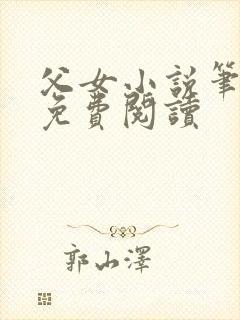 父女小说筆
免費閱讀
郭山澤